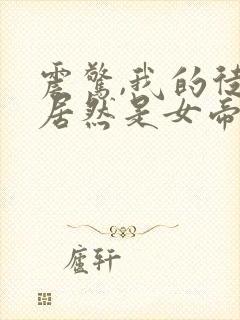 震惊,我的徒
居然是女帝
庐轩